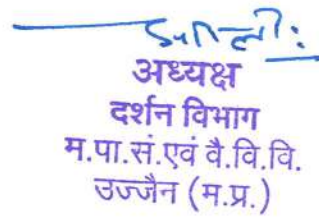 अध्यक्ष
दर्शन विभाग
म.पा.सं.एवं वै.वि.वि.
उज्जैन (म.प्र.)